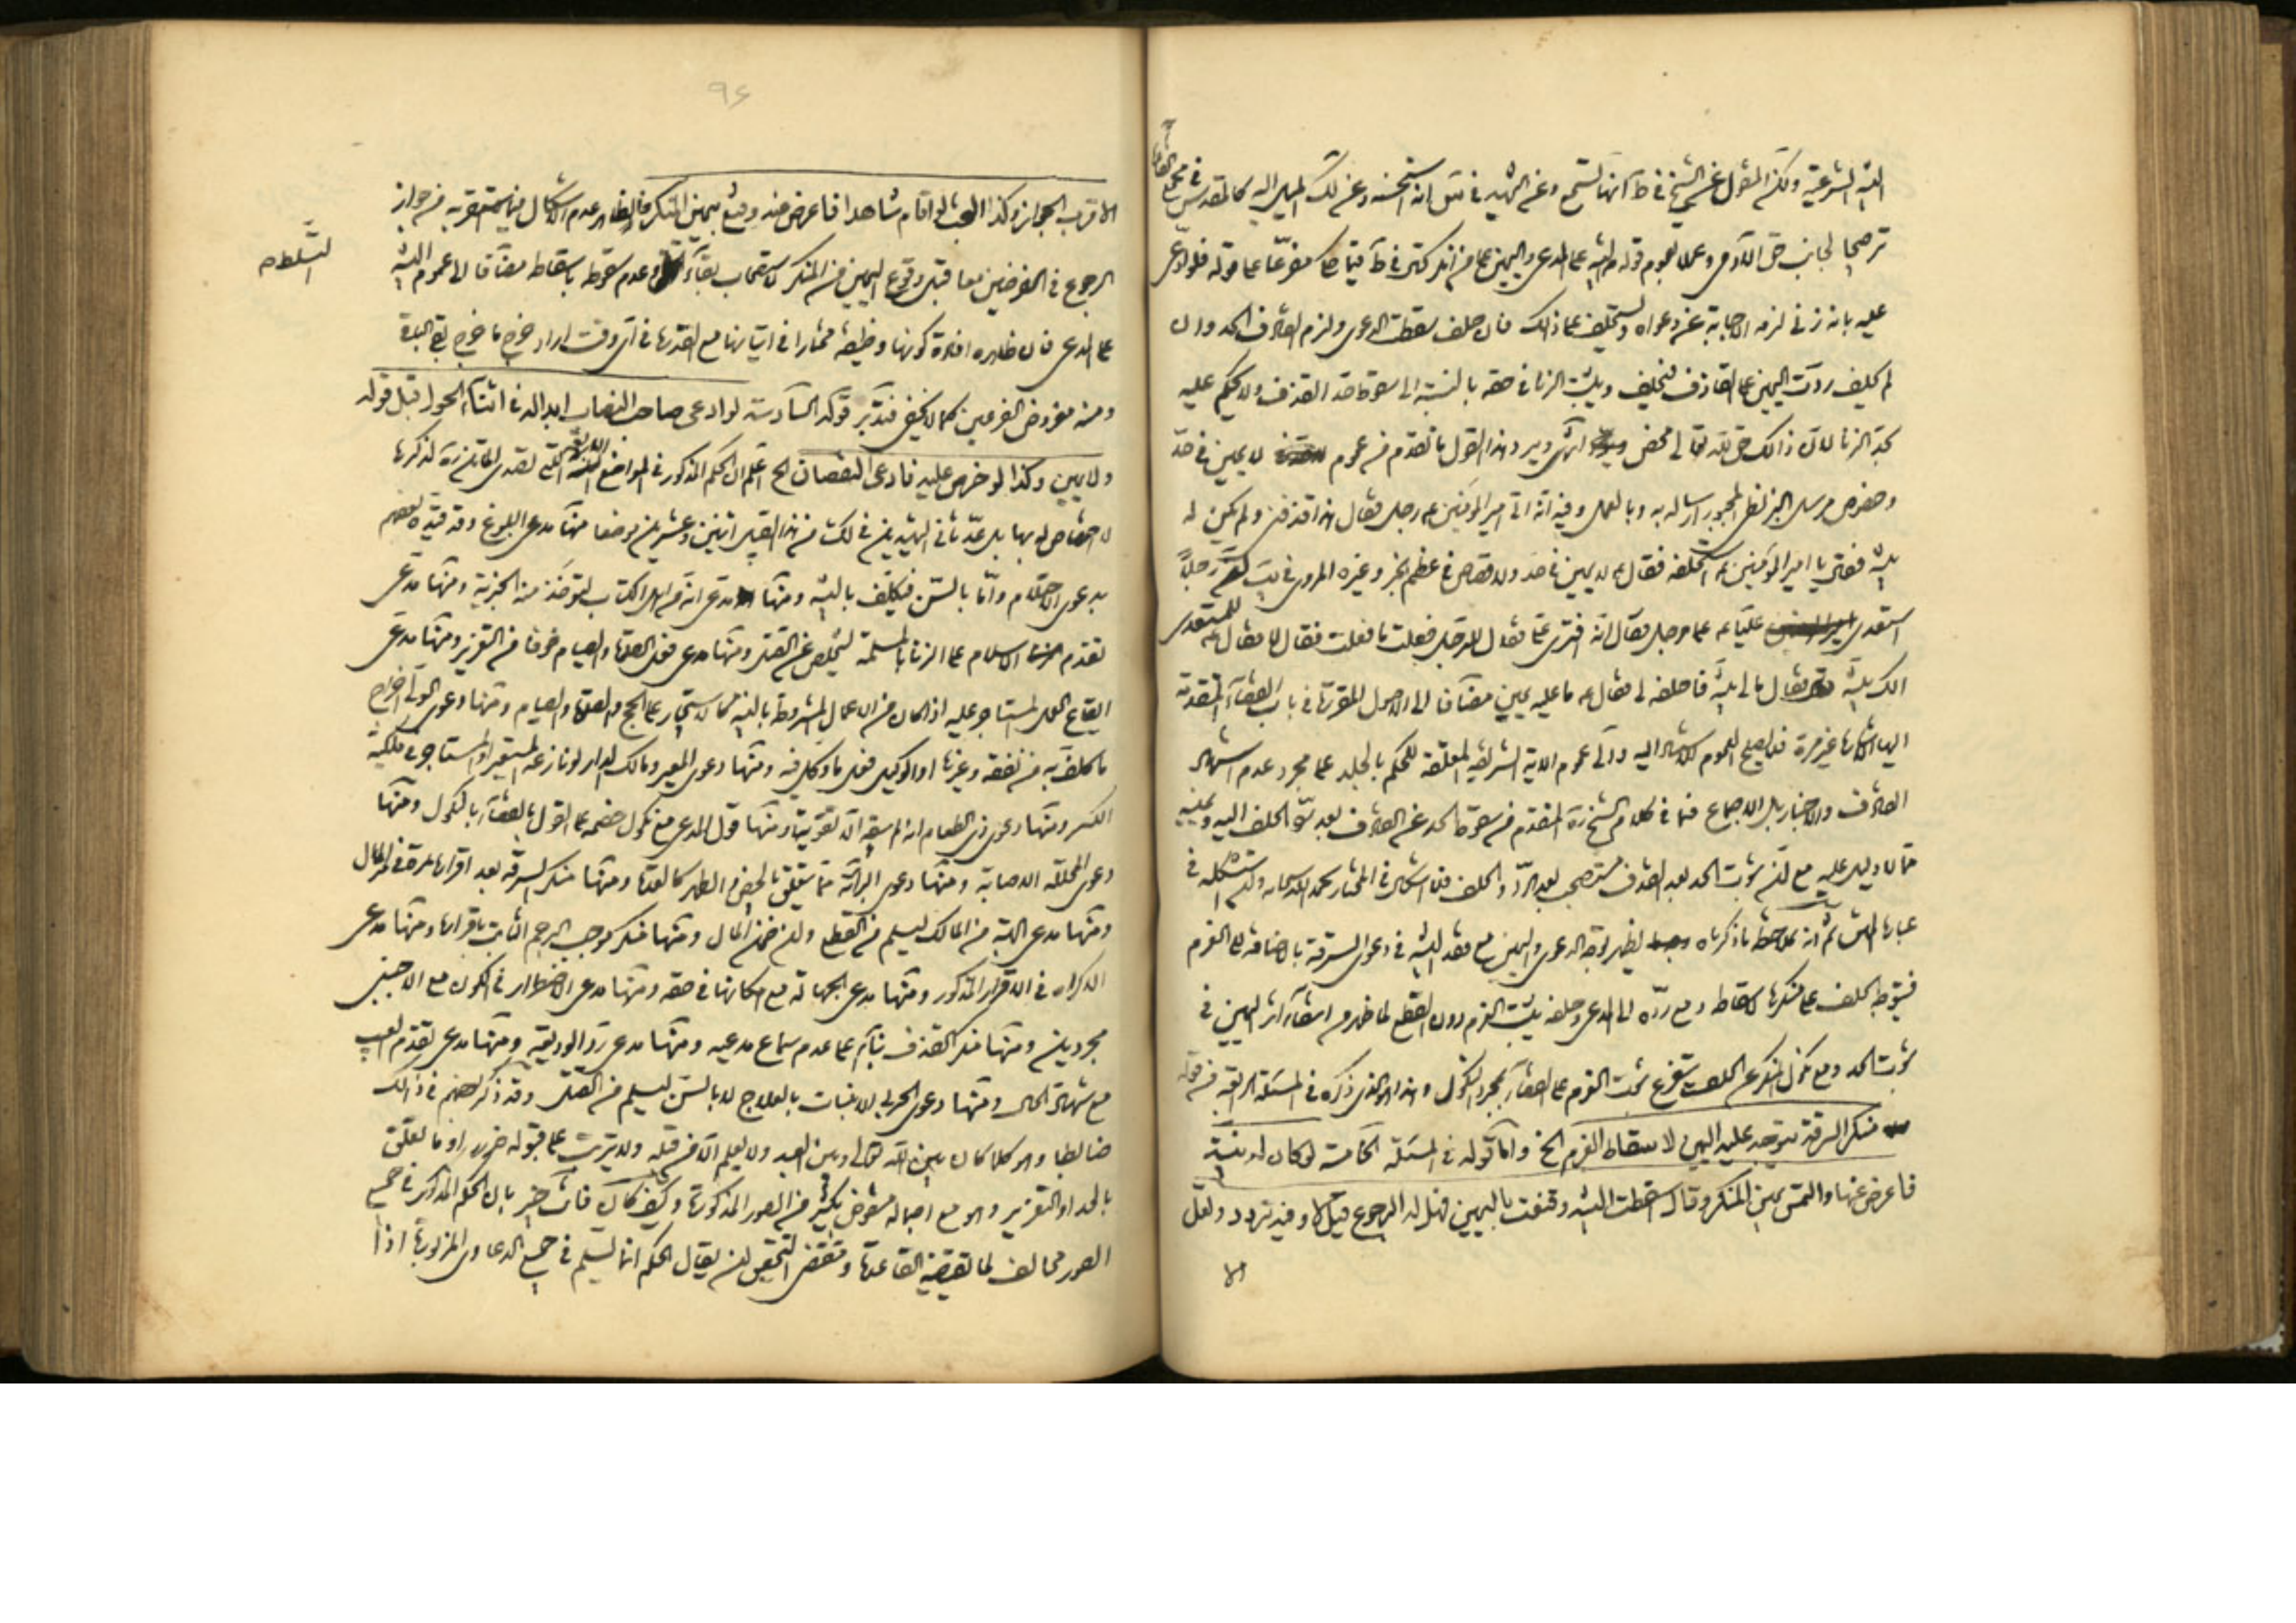 البينة الشرعية ولكن المنقول عن الشيخ في ط انها تسمع وعن الشهيد في س انه استحسنه وعن لك الميل اليه كالمقدس في مجمع
ترجيحا لجانب حق الآدمي وعملا بعموم قوله البينة على المدعي واليمين على من انكر في ط مفرعا على قوله فلو ادعى
عليه بانه زنى لزمه الاجابة عن دعواه ويستحلف على ذلك فان حلف سقطت الدعوى ولزم القاذف الحد وان
لم يحلف ردت اليمين على القاذف فيحلف ويثبت الزنا في حقه بالنسبة الى سقوط حد القذف ولا يحكم عليه
بحد الزنا لان ذلك حق لله تعالى محض انتهى ويرد هذا القول ما تقدم من عموم لا يمين في حد
وخصوص مرسل البزنطي المجبور ارساله به وبالعمل وفيه انه اتى امير المؤمنين ع رجل فقال هذا قذفني ولم يكن له
بينة فقال يا امير المؤمنين استحلفه فقال ع لا يمين في حد ولا قصاص في عظم الخبر وغيره المروي في ان رجلا
استعدى عليا ع على رجل فقال انه افترى علي فقال للرجل فعلت ما فعلت فقال لا فقال ع للمستعدي
الك بينة فقال مالي بينة فاحلفه لي فقال ع ما عليه يمين مضافا الى الاصول المقررة في باب القضاء المتقدمة
اليها الاشارة غير مرة فلا يصلح العموم للاستناد اليه والى عموم الآية الشريفة المعلقة للحكم بالجلد على مجرد عدم اشهاد
القاذف والاخبار بل الاجماع فما في كلام الشيخ ره المتقدم من سقوط الحد عن القاذف بعد الحلف
مما لا دليل عليه مع ان ثبوت الحد بعد القذف مستصحب بعد الرد والحلف فلا اشكال في المختار بحمد الله سبحانه
عبارة المتن ثم انه بملاحظة ما ذكرناه يظهر توجه الدعوى واليمين مع فقد البينة في دعوى السرقة بالاضافة الى الغرم
فيتوجه الحلف على منكرها لاسقاطه ومع رده الى المدعي وحلفه يثبت الغرم دون القطع لما ظهر من انتفاء اثر اليمين في
ثبوت الحد ومع نكول المنكر عن الحلف يتفرع ثبوت الغرم على القضاء بمجرد النكول وهذا هو الذي ذكره في المسئلة الرابعة من قوله
منكر السرقة يتوجه عليه اليمين لاسقاط الغرم الخ واما قوله في المسئلة الخامسة لو كان له بينة
فاعرض عنها والتمس يمين المنكر وقال اسقطت البينة وقنعت باليمين فهل له الرجوع قيل لا وفيه تردد ولعل
الا
٩٤
الاقرب الجواز وكذا البحث لو اقام شاهدا فاعرض عنه وقنع بيمين المنكر فالظاهر عدم الاشكال فيما استقربه من جواز
الرجوع في الفرضين معا قبل وقوع اليمين من المنكر لاستصحاب بقاء وعدم سقوطه باسقاطه مضافا الى عموم البينة
التسلط ص
على المدعي فان ظاهره افادة كونها وظيفة مختارا في اتيانها مع القدرة في اي وقت اراد خرج ما خرج
ومنه مفروض الفرعين كما لا يخفى فتدبر قوله السادسة لو ادعى صاحب النصاب ابداله في اثناء الحول قبل قوله
ولا يمين وكذا لو خرص عليه فادعى النقصان الخ اعلم ان الحكم المذكور في المواضع التي تعدى الماتن ره لذكرها
لا اختصاص له بها بل عد ثاني الشهيدين في لك من هذا القبيل اثنين وعشرين موضعا منها مدعي البلوغ وقد قيده بعضهم
بدعوى الاحتلام واما بالسن فيكلف بالبينة ومنها مدعي انه من اهل الكتاب لتؤخذ منه الجزية ومنها مدعي
تقدم الاسلام على الزنا بالمسلمة ليتخلص عن القتل ومنها مدعي فعل الصلوة والصيام خوفا من التعزير ومنها مدعي
ايقاع العمل المستاجر عليه اذا كان من الاعمال المشروطة بالنية كالاستيجار على الحج والصلوة والصيام ومنها دعوى الولي اخراج
ما كلف به من نفقة وغيرها او الوكيل فعل ما وكل فيه ومنها دعوى المعير ومالك الدار لو نازعه المستعير او المستاجر في ملكية
الكنز ومنها دعوى ذي الطعام انه لم يبقه الا لقوته ومنها قول المدعي مع نكول خصمه على القول بالقضاء بالنكول ومنها
دعوى المحللة الاصابة ومنها دعوى المرأة مما يتعلق بالحيض والطهر كالعدة ومنها منكر السرقة بعد اقراره مرة في المال
ومنها مدعي الهبة من المالك ليسلم من القطع وان ضمن المال ومنها منكر موجب الرجم الثابت باقراره ومنها مدعي
الاكراه في الاقرار المذكور ومنها مدعي الجهالة مع امكانها في حقه ومنها مدعي الاضطرار في الكون مع الاجنبي
مجردين ومنها منكر القذف بناء على عدم سماع مدعيه ومنها مدعي رد الوديعة ومنها مدعي تقدم العيب
مع شهادة الحال ومنها دعوى الحربي الانبات بالعلاج لا بالسن ليسلم من القتل وقد ذكر بعضهم في ذلك
ضابطا وهو كلما كان بين الله تعالى وبين العبد ولا يعلم الا من قبله ولا يترتب على قبوله ضرر او ما تعلق
بالحد او التعزير وهو مع اجماله منقوض بكثير من الصور المذكورة وكيف كان فانت خبير بان الحكم المذكور في جميع
الصور مخالف لما تقتضيه القاعدة ومقتضى التحقيق ان يقال الحكم انما يسلم في جميع الدعاوي المزبورة اذا